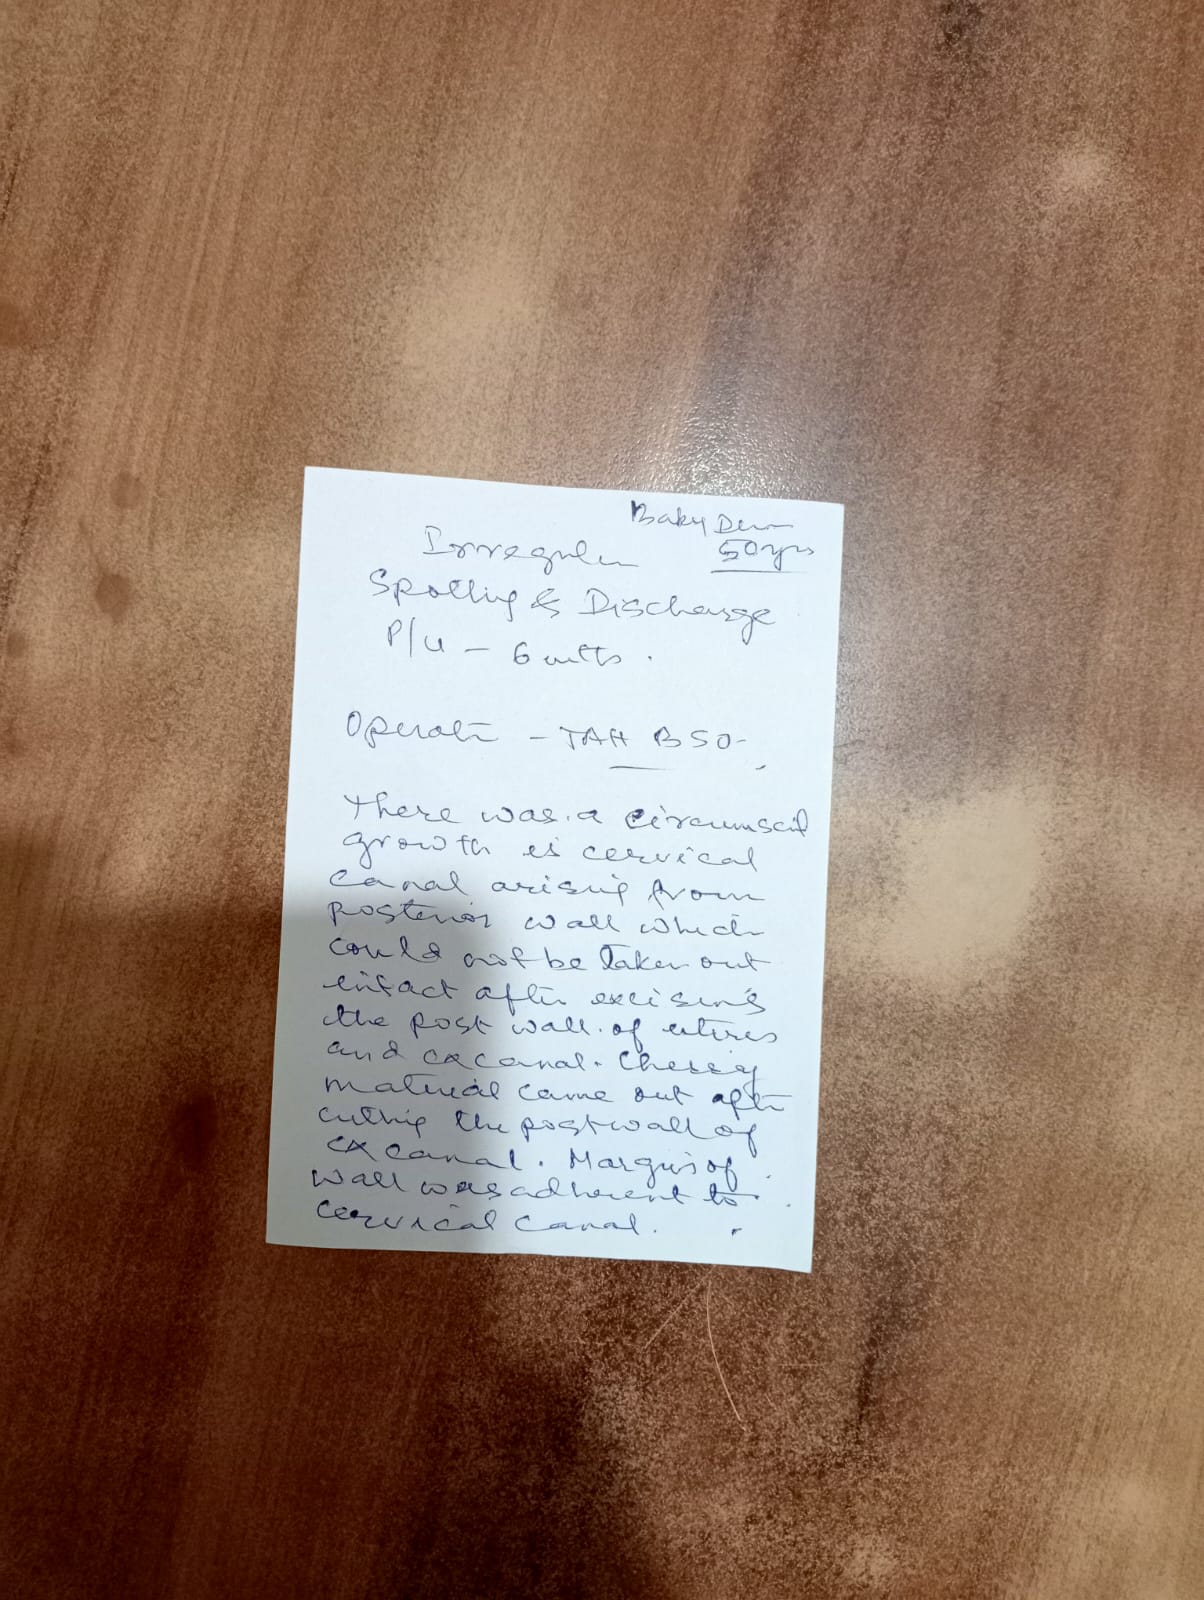 Baby Devi
50 yrs
Irregular
Spotting & Discharge
P/V - 6 mths.
Operati - TAH BSO -
There was a circumscrib
growth is cervical
canal arising from
posterior wall which
could not be taken out
intact after excising
the post wall of uterus
and cx canal. Cheesy
material came out after
cutting the post wall of
cx canal. Margins of
wall was adherent to
cervical canal.